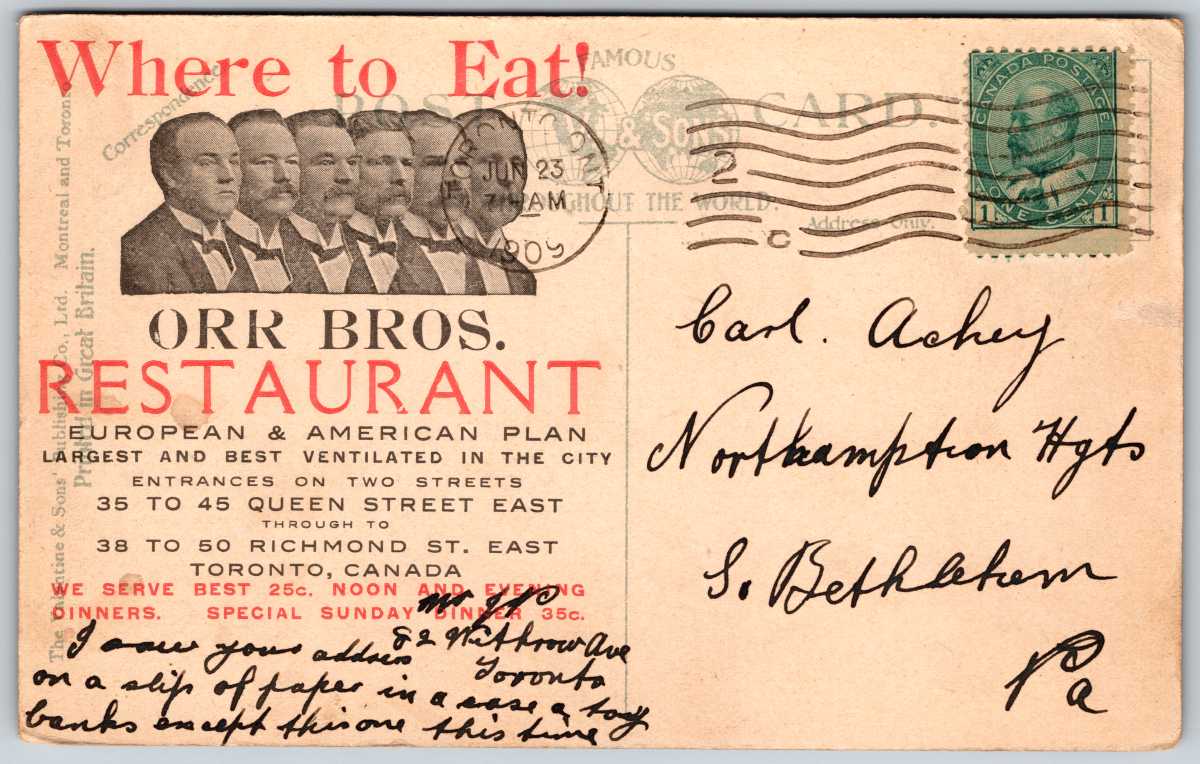 Where to Eat!
ORR BROS.
RESTAURANT
EUROPEAN & AMERICAN PLAN
LARGEST AND BEST VENTILATED IN THE CITY
ENTRANCES ON TWO STREETS
35 TO 45 QUEEN STREET EAST
THROUGH TO
38 TO 50 RICHMOND ST. EAST
TORONTO, CANADA
WE SERVE BEST 25c. NOON AND EVENING
DINNERS. SPECIAL SUNDAY DINNER 35c.
Mr
82 Withrow Ave
Toronto
I your address
on a slip of paper in a case a toy
banks except this one this time
Correspondence
The Valentine & Sons' Publishing Co., Ltd. Montreal and Toronto
Printed in Great Britain.
FAMOUS
POST CARD.
& SONS
THROUGHOUT THE WORLD.
Address Only.
TORONTO, ONT
JUN 23
AM
1909
2
C
CANADA POSTAGE
1 ONE CENT 1
Carl. Achey
Northamption Hgts
So. Bethlehem
Pa